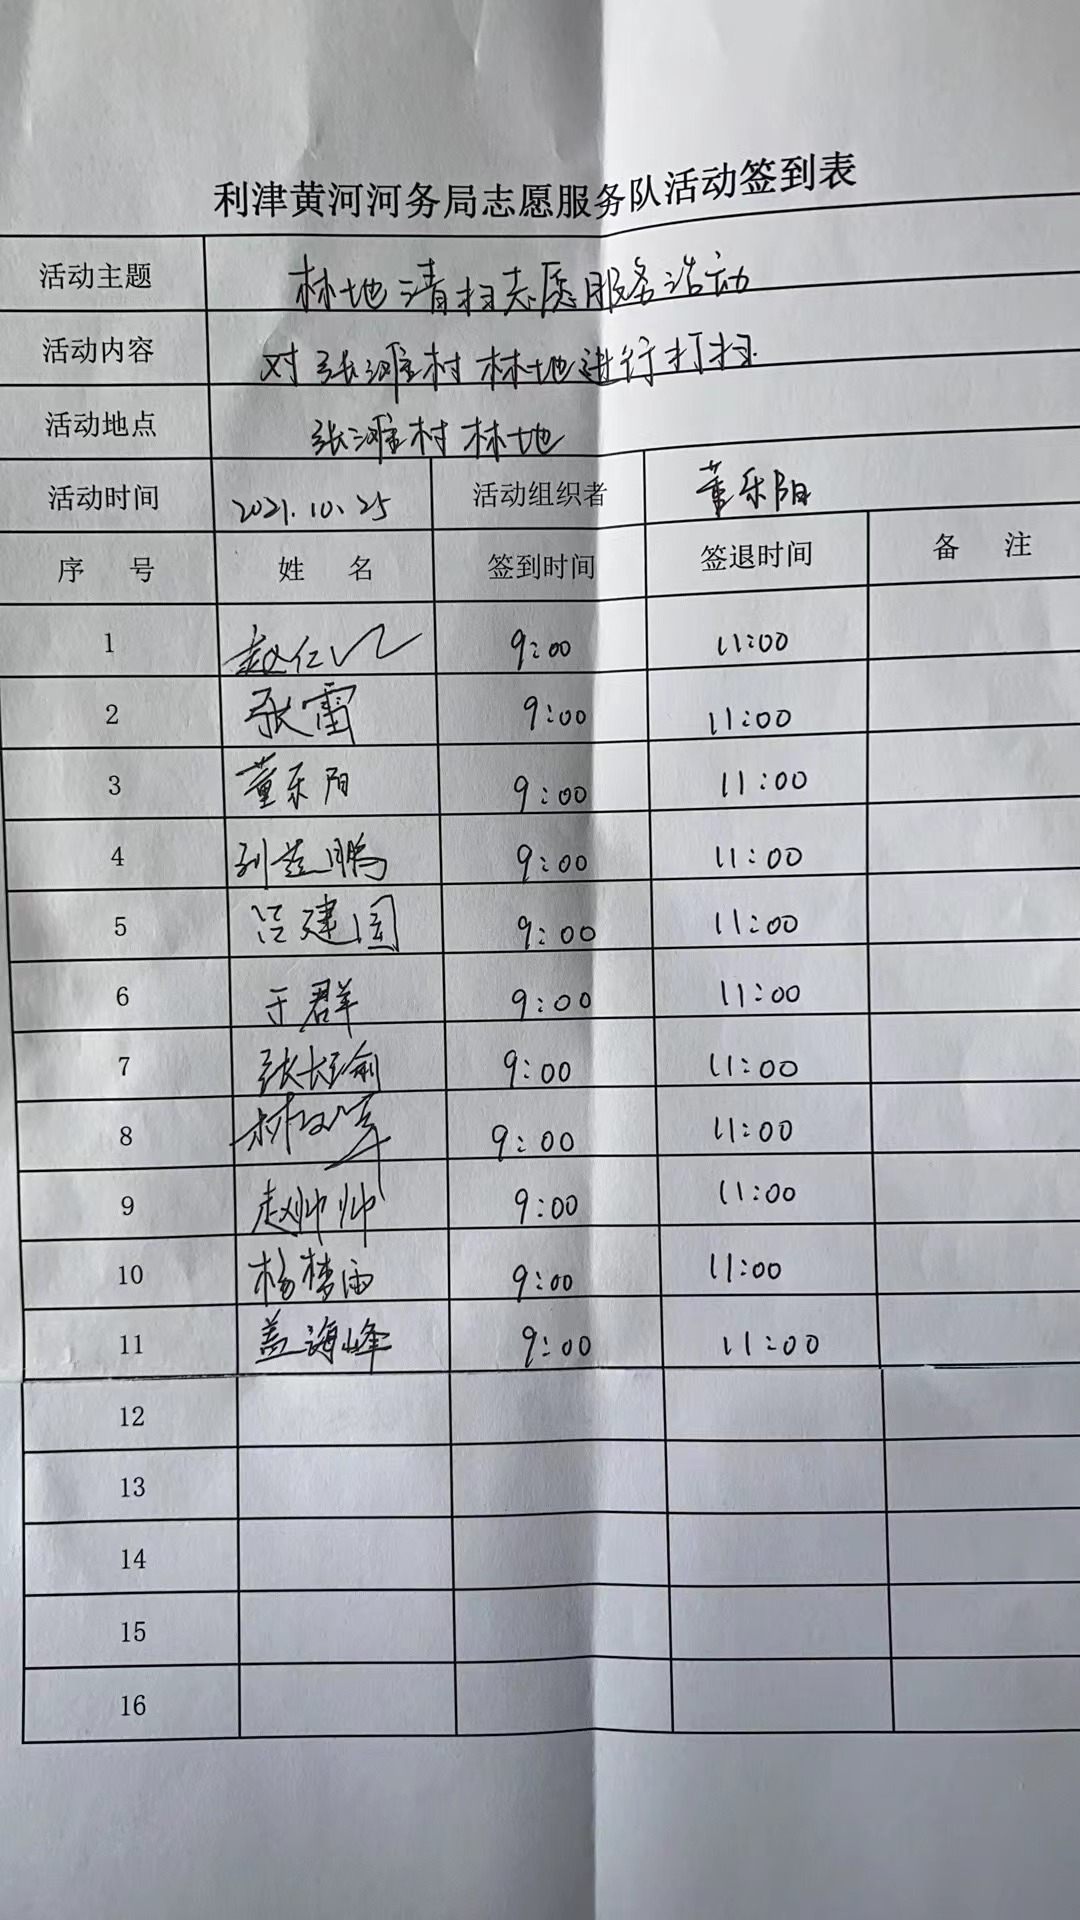 利津黄河河务局志愿服务队活动签到表
活动主题 林地清扫志愿服务活动
活动内容 对张滩村林地进行打扫
活动地点 张滩村林地
活动时间 2021.10.25 活动组织者 董乐阳
序 号 姓 名 签到时间 签退时间 备 注
1 赵仁 9:00 11:00
2 张雷 9:00 11:00
3 董乐阳 9:00 11:00
4 刘益鹏 9:00 11:00
5 建国 9:00 11:00
6 于君羊 9:00 11:00
7 张长瑜 9:00 11:00
8 9:00 11:00
9 赵帅帅 9:00 11:00
10 杨梦雨 9:00 11:00
11 盖海峰 9:00 11:00
12
13
14
15
16